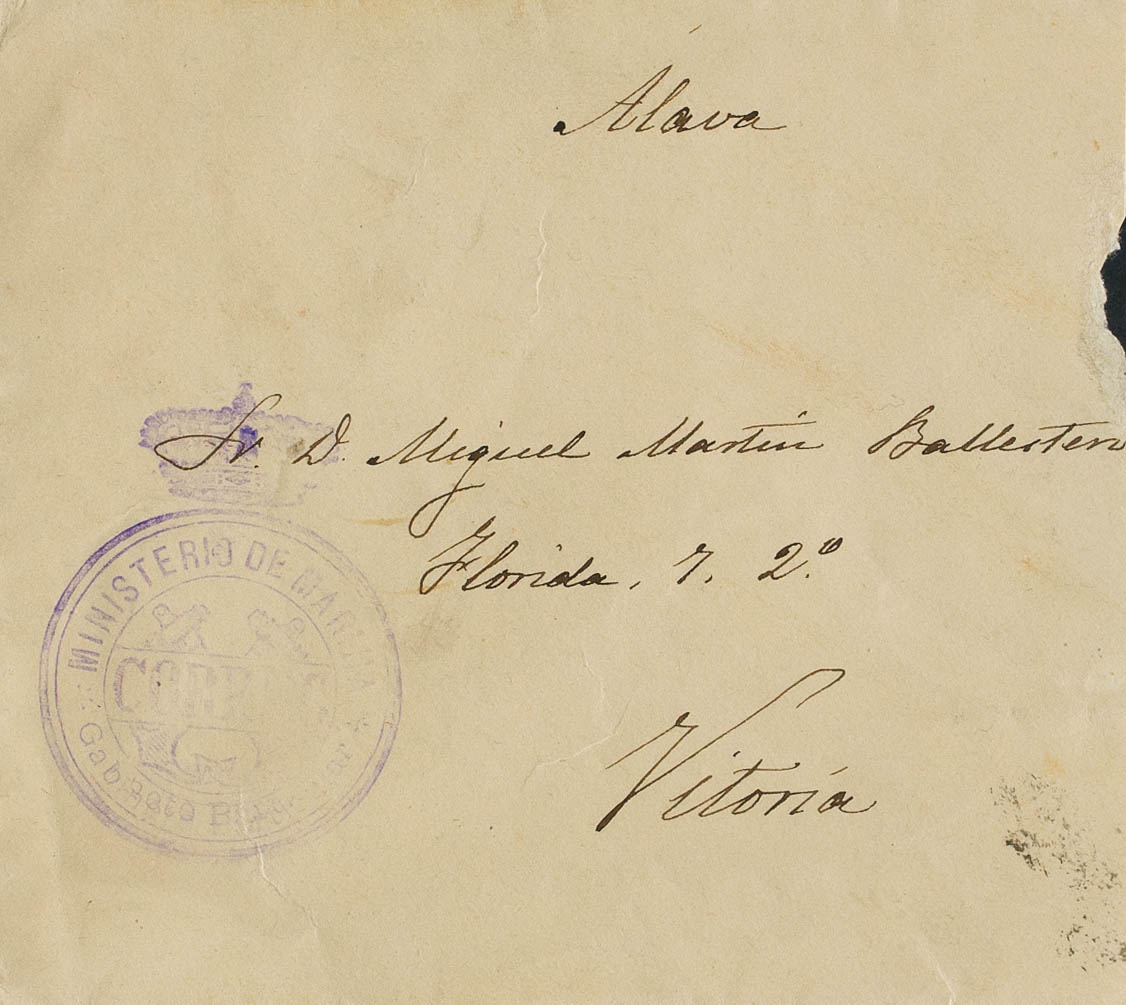 Alava
Sr. D. Miguel Martín Ballestero
Florida, 7, 2º
Vitoria
MINISTERIO DE MARINA
CORREOS
Gabinete